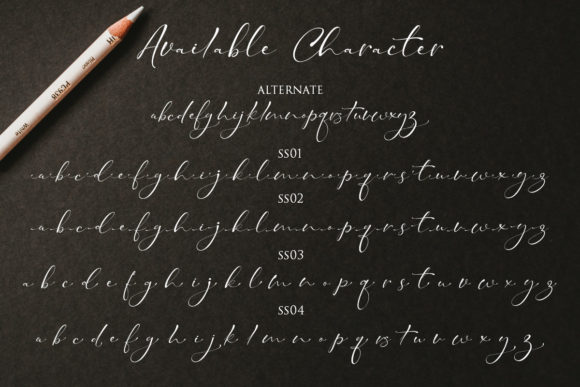 Available Character
White PC938 Blanc UK
ALTERNATE
abcdefghijklmnopqrstuvwxyz
SS01
abcdefghijklmnopqrstuvwxyz
SS02
abcdefghijklmnopqrstuvwxyz
SS03
a b c d e f g h i j k l m n o p q r s t u v w x y z
SS04
a b c d e f g h i j k l m n o p q r s t u v w x y z